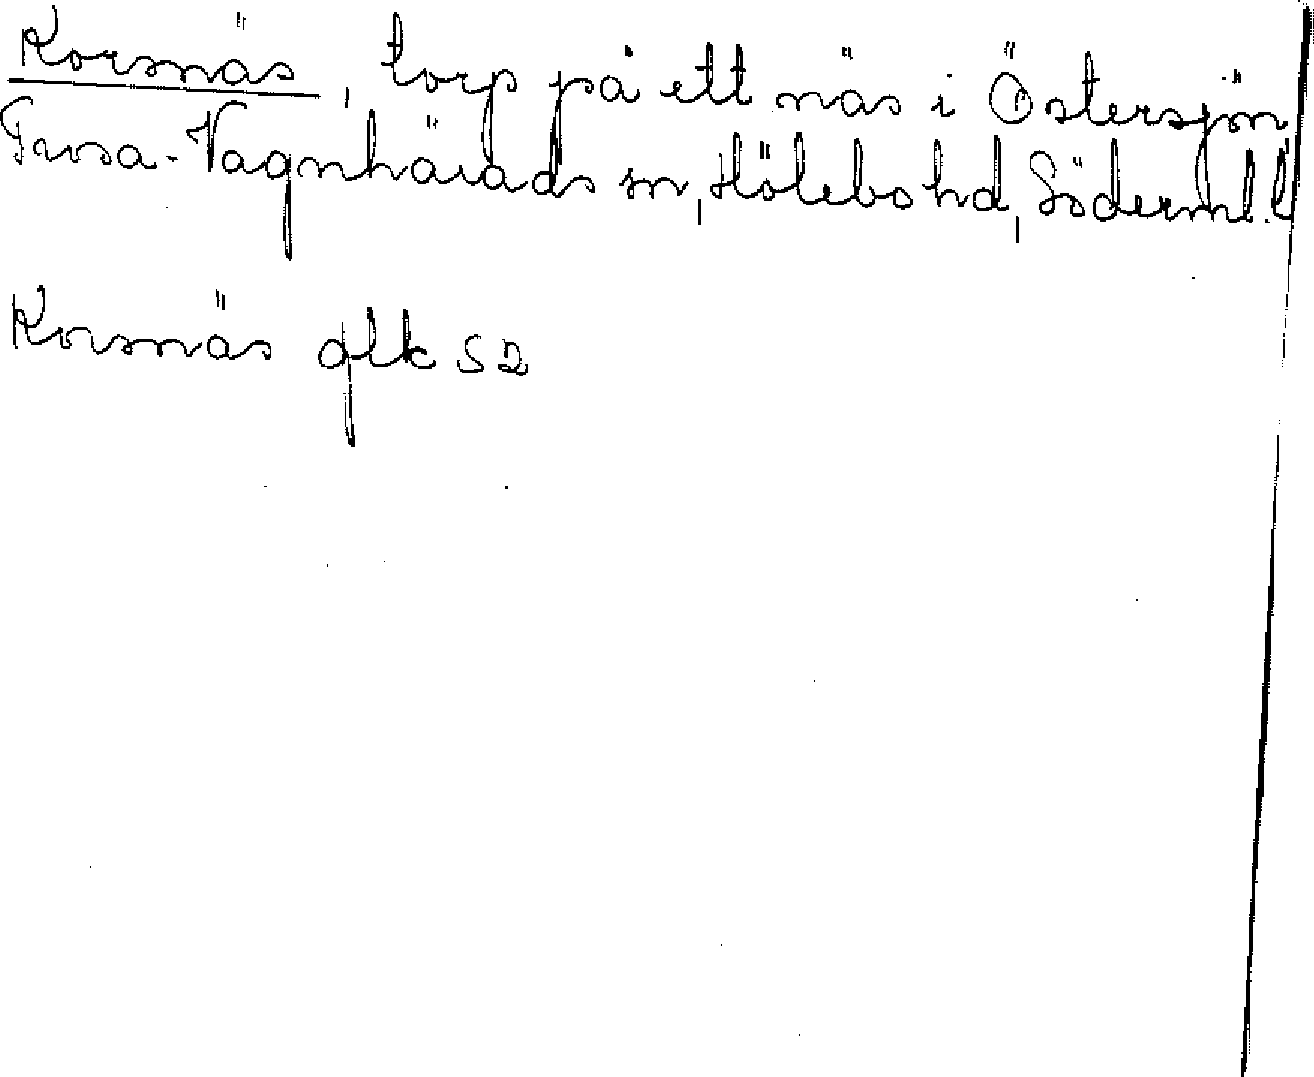 Korsnäs, torp på ett näs i Östersjön
Trosa-Vagnhärads sn, Hölebo hd, Söderml. l
Korsnäs glk SD